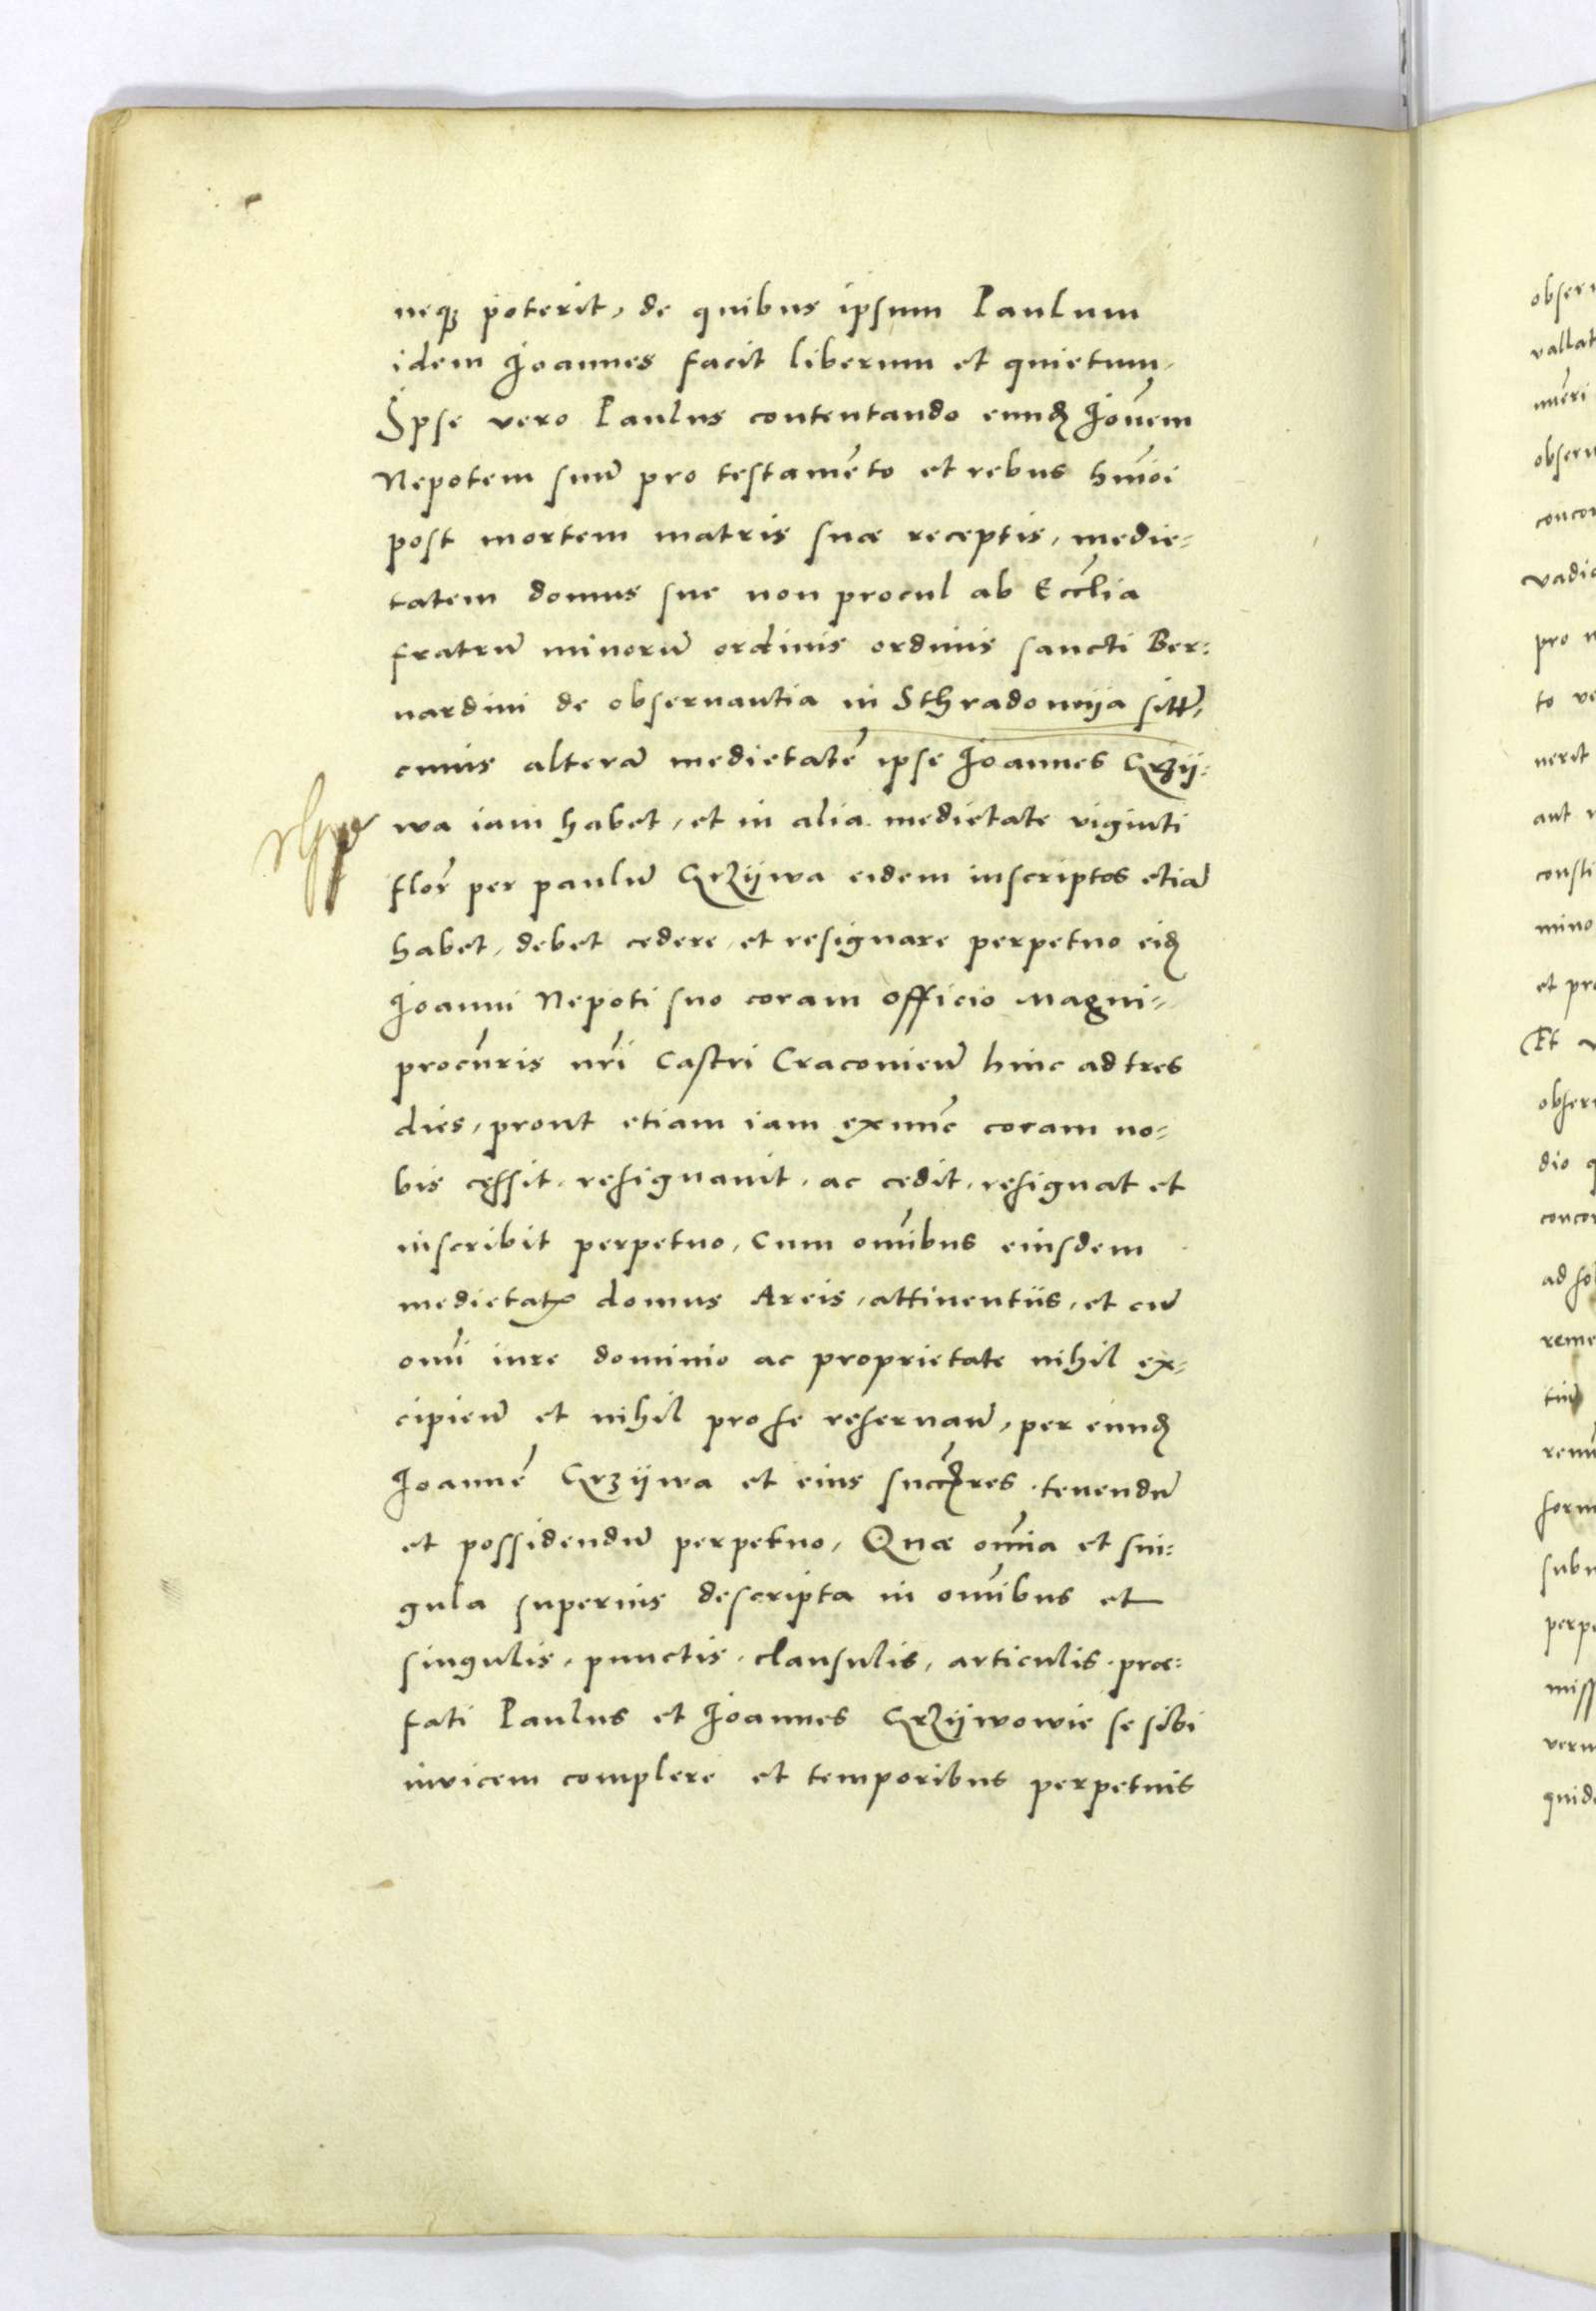 neq₃ poterit, de quibus ipsum Paulum
idem Joannes facit liberum et quietum,
Ipse vero Paulus contentando eund₃ Joñem
Nepotem suū pro testamēto et rebus hmōi
post mortem matris suæ receptis, medie=
tatem domus sue non procul ab Eccl̄ia
fratrū minorū ordinis ordinis sancti Ber:
nardini de obseruantia in Sthradomyia sitt̄,
cuius alterā medietatē ipse Joannes Grzÿ:
wa iam habet, et in alia medietate viginti
flor̄ per paulū Grzÿwa eidem inscriptos etiā
habet, debet cedere, et resignare perpetuo eid₃
Joanni Nepoti suo coram officio magni=
procūris nr̄i Castri Cracovieñ hinc ad tres
dies, prout etiam iam exnūc coram no=
bis cęssit, resignavit, ac cedit, resignat et
inscribit perpetuo, Cum om̄ibus eiusdem
medietatꝭ domus Areis, attinentiis, et cū
om̄i iure dominio ac proprietate nihil ex=
cipieñ et nihil pro se reservañ, per eund₃
Joannē Grzÿwa et eius succ̄res tenendū
et possidendū perpetuo, Quæ om̄ia et sin:
gula superius descripta in om̄ibus et
singulis, punctis, clausulis, articulis, præ:
fati Paulus et Joannes Grzÿwowie se sibi
invicem complere et temporibus perpetuis
obser
vallat
mūeri
obseru
concor
vadio
pro
to ve
nerit
aut
consti
mino
et pro
Et
obser
dio q
concor
ad
reme
form
subm
perpe
miss
veru
quid